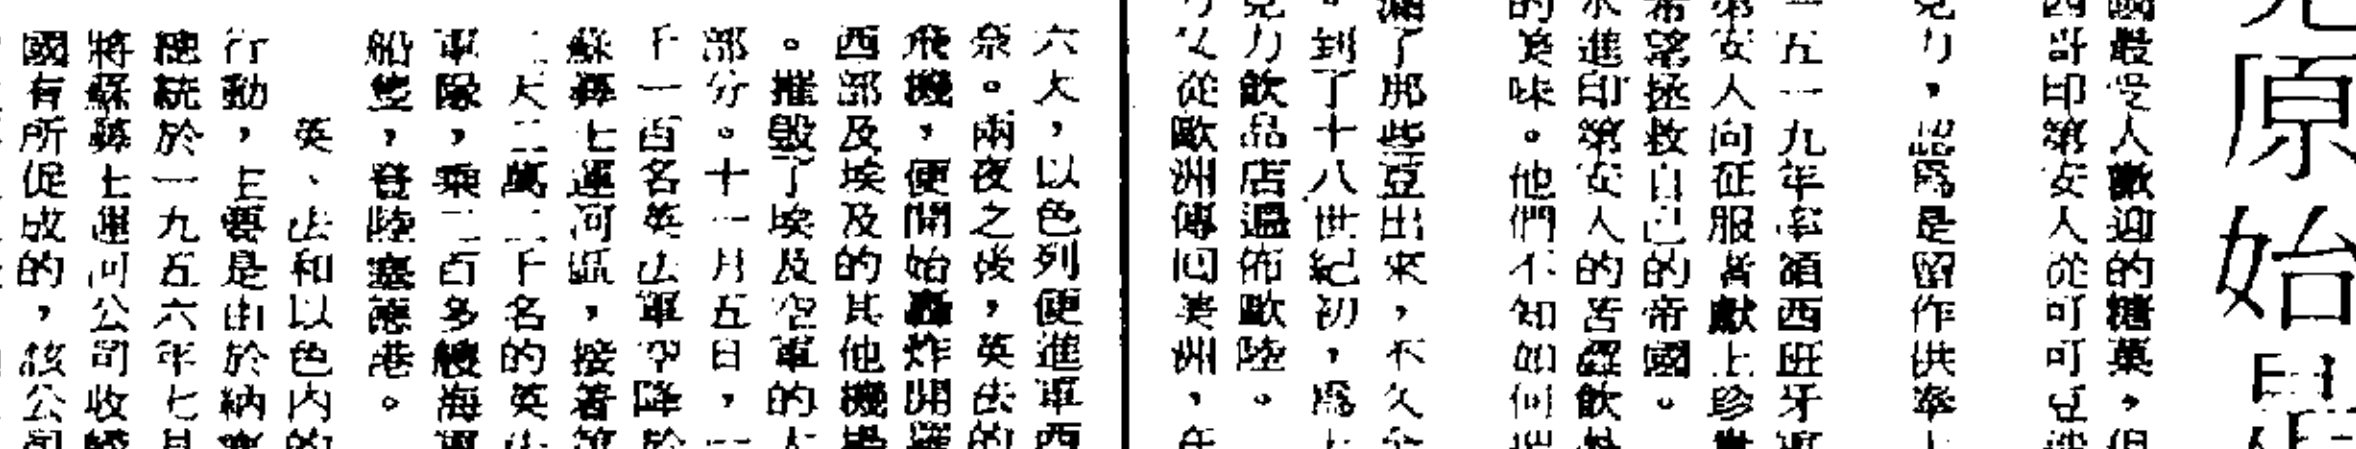 原始
國最受人歡迎的糖菓，但
西哥印第安人從可可豆
克力，認爲是留作供奉
五一九年率領西班牙軍
第安人向征服者獻上珍
希望拯救自己的帝國。
水進印第安人的苦澀飲
的美味。他們不知如何
滿了那些豆出來，不久
。到了十八世紀初，爲
克力飲品店遍佈歐陸。
又從歐洲傳回美洲，在
六大，以色列便進軍西
奈。兩夜之後，英法的
飛機，便開始轟炸開羅
西部及埃及的其他機場
。摧毀了埃及空軍的大
部分。十一月五日，一
千一百名英法軍空降於
蘇彝士運河區，接着第
二天二萬二千名的英法
軍隊，乘二百多艘海軍
船隻，登陸塞得港。
英、法和以色內的
行動，主要是由於納塞
總統於一九五六年七月
將蘇彝士運河公司收歸
國有所促成的，該公司